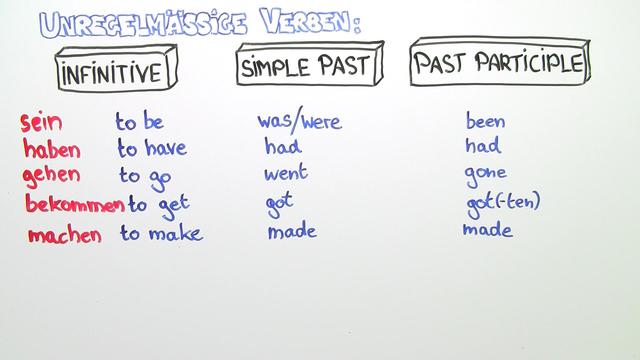 UNREGELMÄSSIGE VERBEN:
INFINITIVE SIMPLE PAST PAST PARTICIPLE
sein to be was/were been
haben to have had had
gehen to go went gone
bekommen to get got got(-ten)
machen to make made made